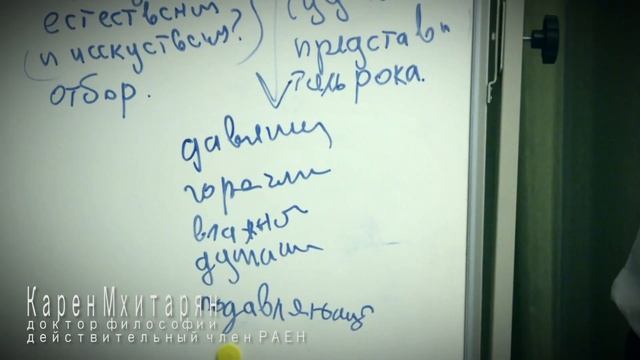 естествєнным
(и искуствєным?
отбор.
представи
тель рока.
давящий
горячий
влажной
душащий
подавляющей
Карен Мхитарян
доктор философии
действительный член РАЕН